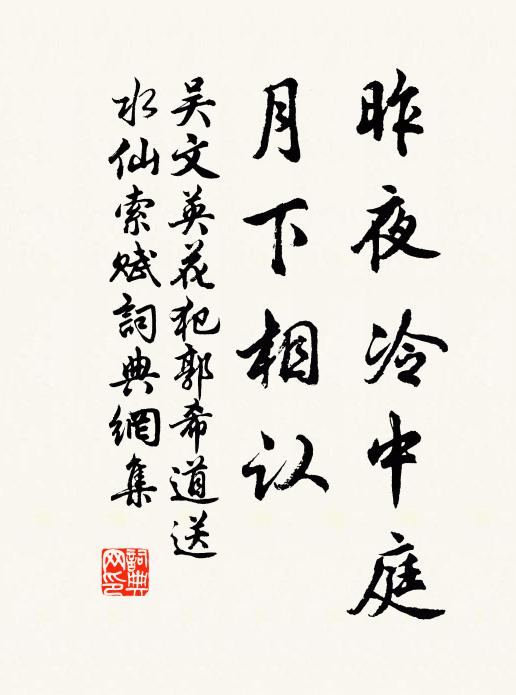 昨夜冷中庭
月下相认
吴文英花犯郭希道送
水仙索赋詞典網集
詞典网印